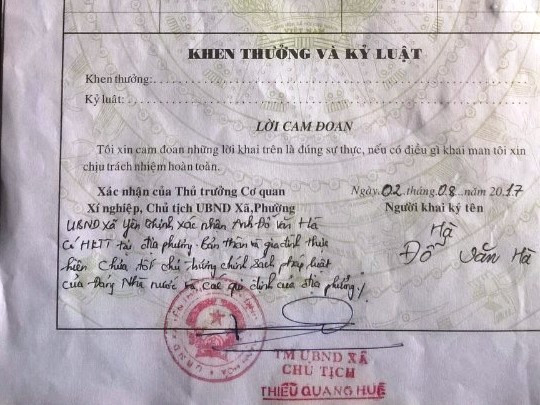 KHEN THƯỞNG VÀ KỶ LUẬT
Khen thưởng:
Kỷ luật:
LỜI CAM ĐOAN
Tôi xin cam đoan những lời khai trên là đúng sự thực, nếu có điều gì khai man tôi xin
chịu trách nhiệm hoàn toàn.
Xác nhận của Thủ trưởng Cơ quan
Xí nghiệp, Chủ tịch UBND Xã,Phường
Ngày 02 tháng 08 năm 2017
Người khai ký tên
UBND xã Yên Thịnh, xác nhận Anh Đỗ Văn Hà
Có HKTT tại địa phương. Bản thân và gia đình thực
hiện Chưa tốt chủ trương chính sách pháp luật
của Đảng Nhà nước và các qui định của địa phương./
Hà
Đỗ Văn Hà
TM UBND XÃ
CHỦ TỊCH
THIỀU QUANG HUẾ
U.B.N.D